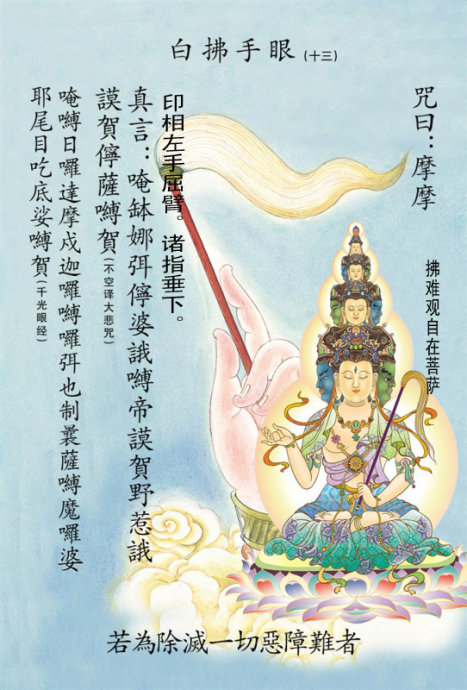 白拂手眼(十三)
咒曰：摩摩
拂难观自在菩萨
印相左手屈臂。诸指垂下。
真言：唵缽娜弭儜婆誐嚩帝謨賀野惹誐
謨賀儜薩嚩賀(不空译大悲咒)
唵嚩日囉達摩戍迦囉嚩囉弭也制曩薩嚩魔囉婆
耶尾目吃底娑嚩賀(千光眼经)
若為除滅一切惡障難者